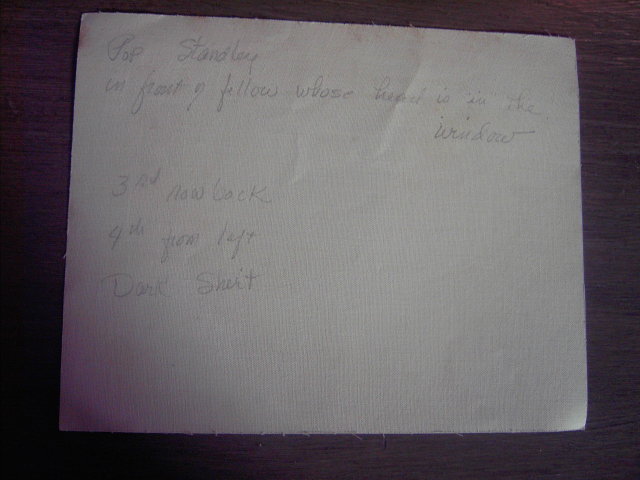 Pop Standley
in front of fellow whose head is in the
window
3rd row back
4th from left
Dark Shirt